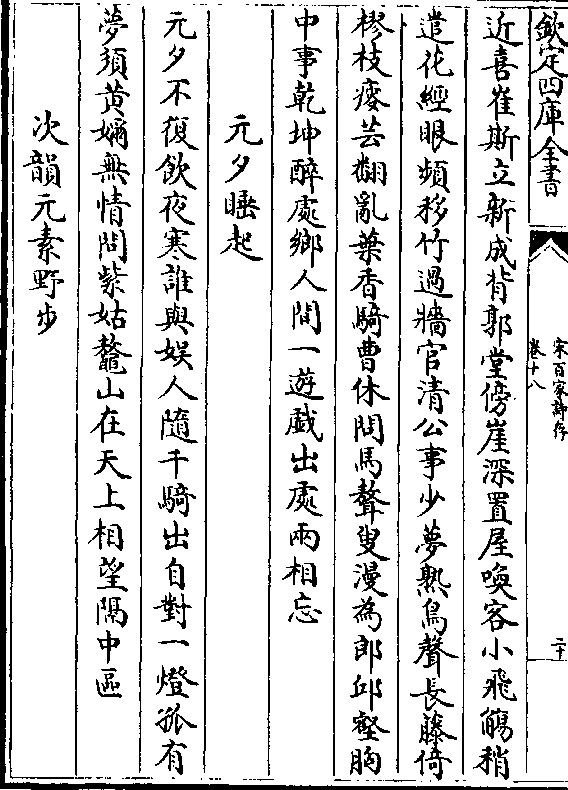 欽定四庫全書
宋百家詩存
卷十八
二十
近喜崔斯立新成背郭堂傍崖深置屋喚客小飛觴稍
遣花經眼頻移竹過牆官清公事少夢熟鳥聲長藤倚
樛枝瘦芸翻亂葉香騎曹休問馬聱叟漫為郎邱壑胸
中事乾坤醉處鄉人間一遊戲出處兩相忘
元夕睡起
元夕不復飲夜寒誰與娱人隨千騎出自對一燈孤有
夢須黄嬭無情問紫姑鼇山在天上相望隔中區
次韻元素野步